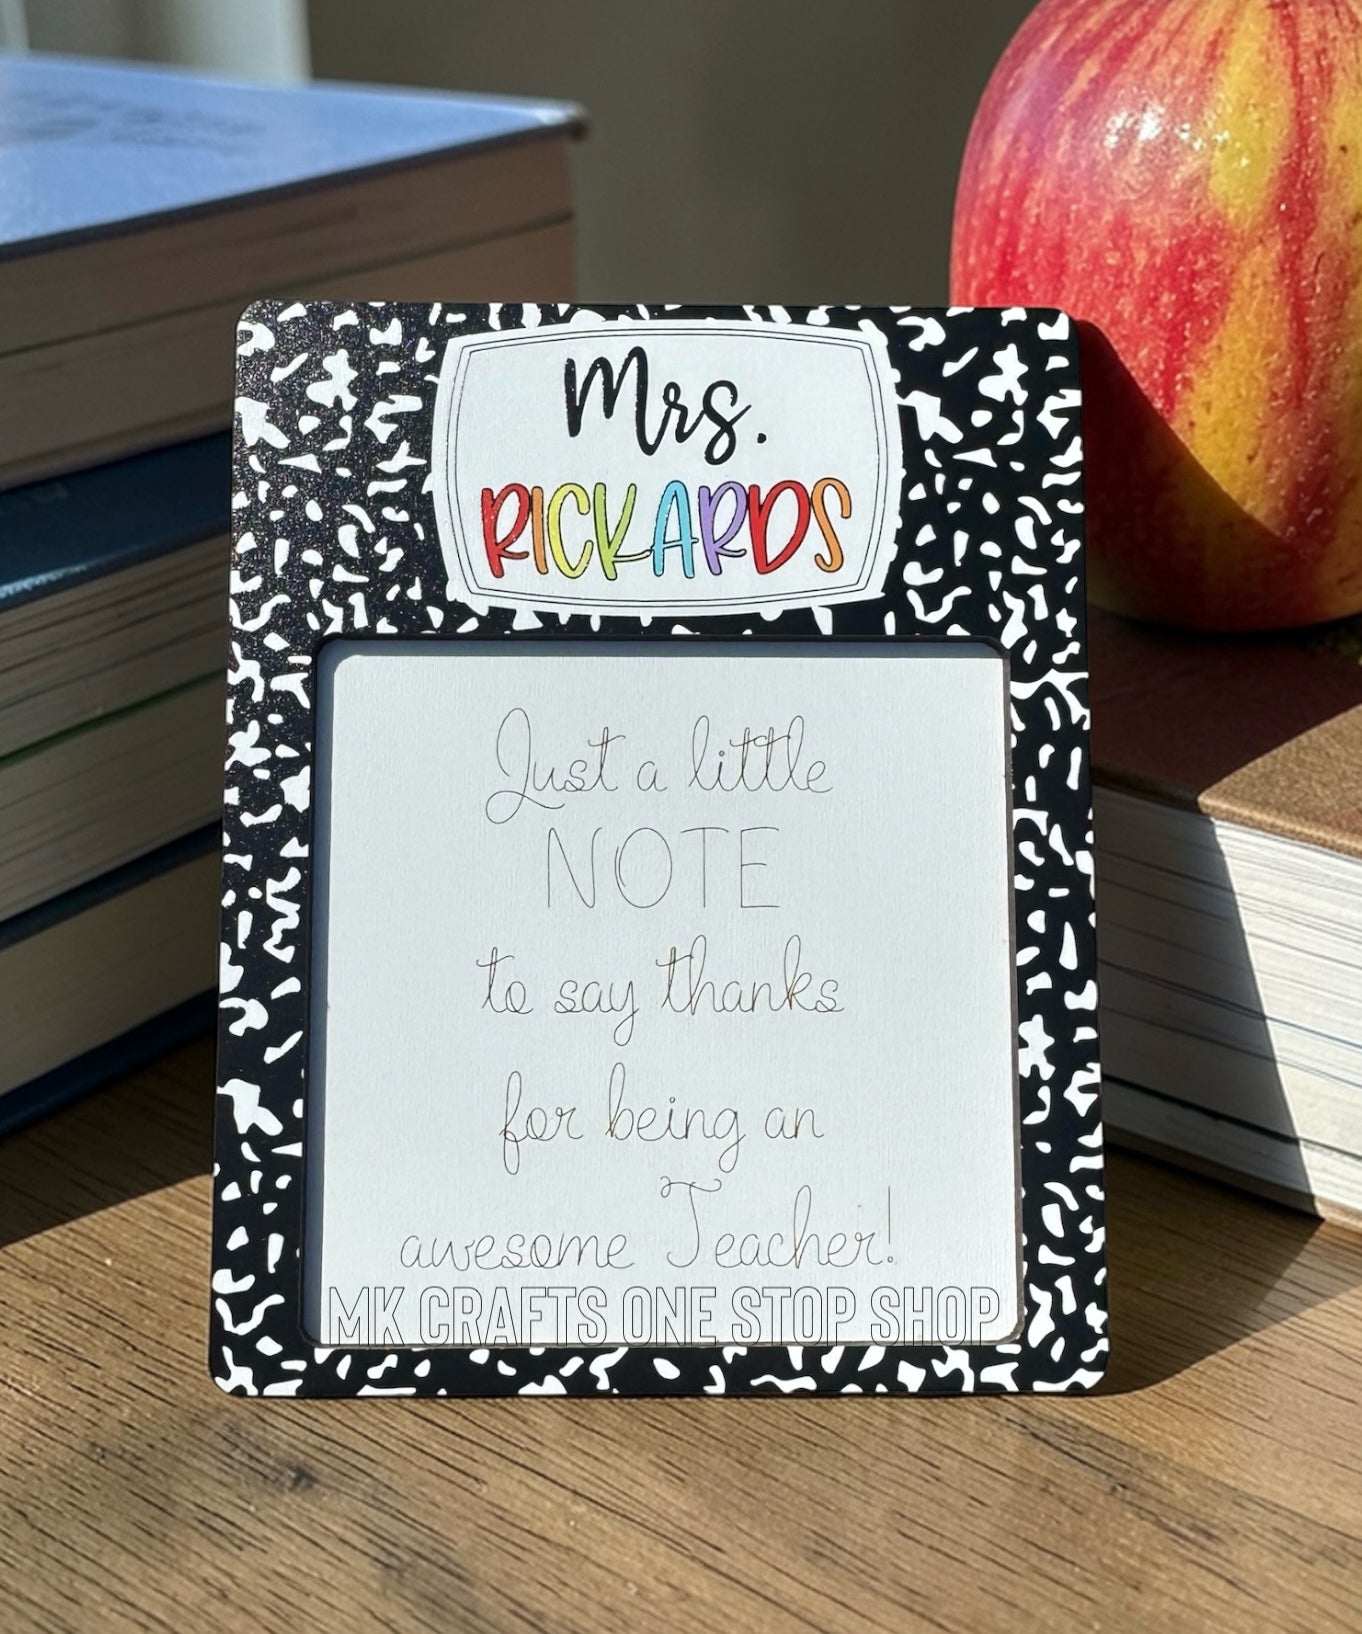 Mrs.
RICKARDS
Just a little
NOTE
to say thanks
for being an
awesome Teacher!
MK CRAFTS ONE STOP SHOP